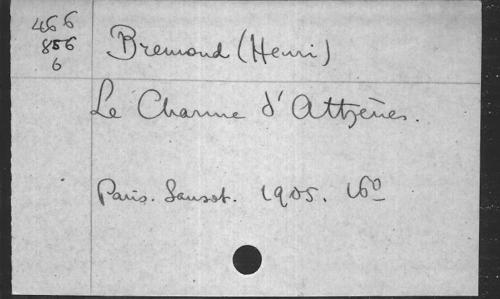 466
856
6
Bremond (Henri)
Le Charme d'Athènes.
Paris. Sansot. 1905. 16º